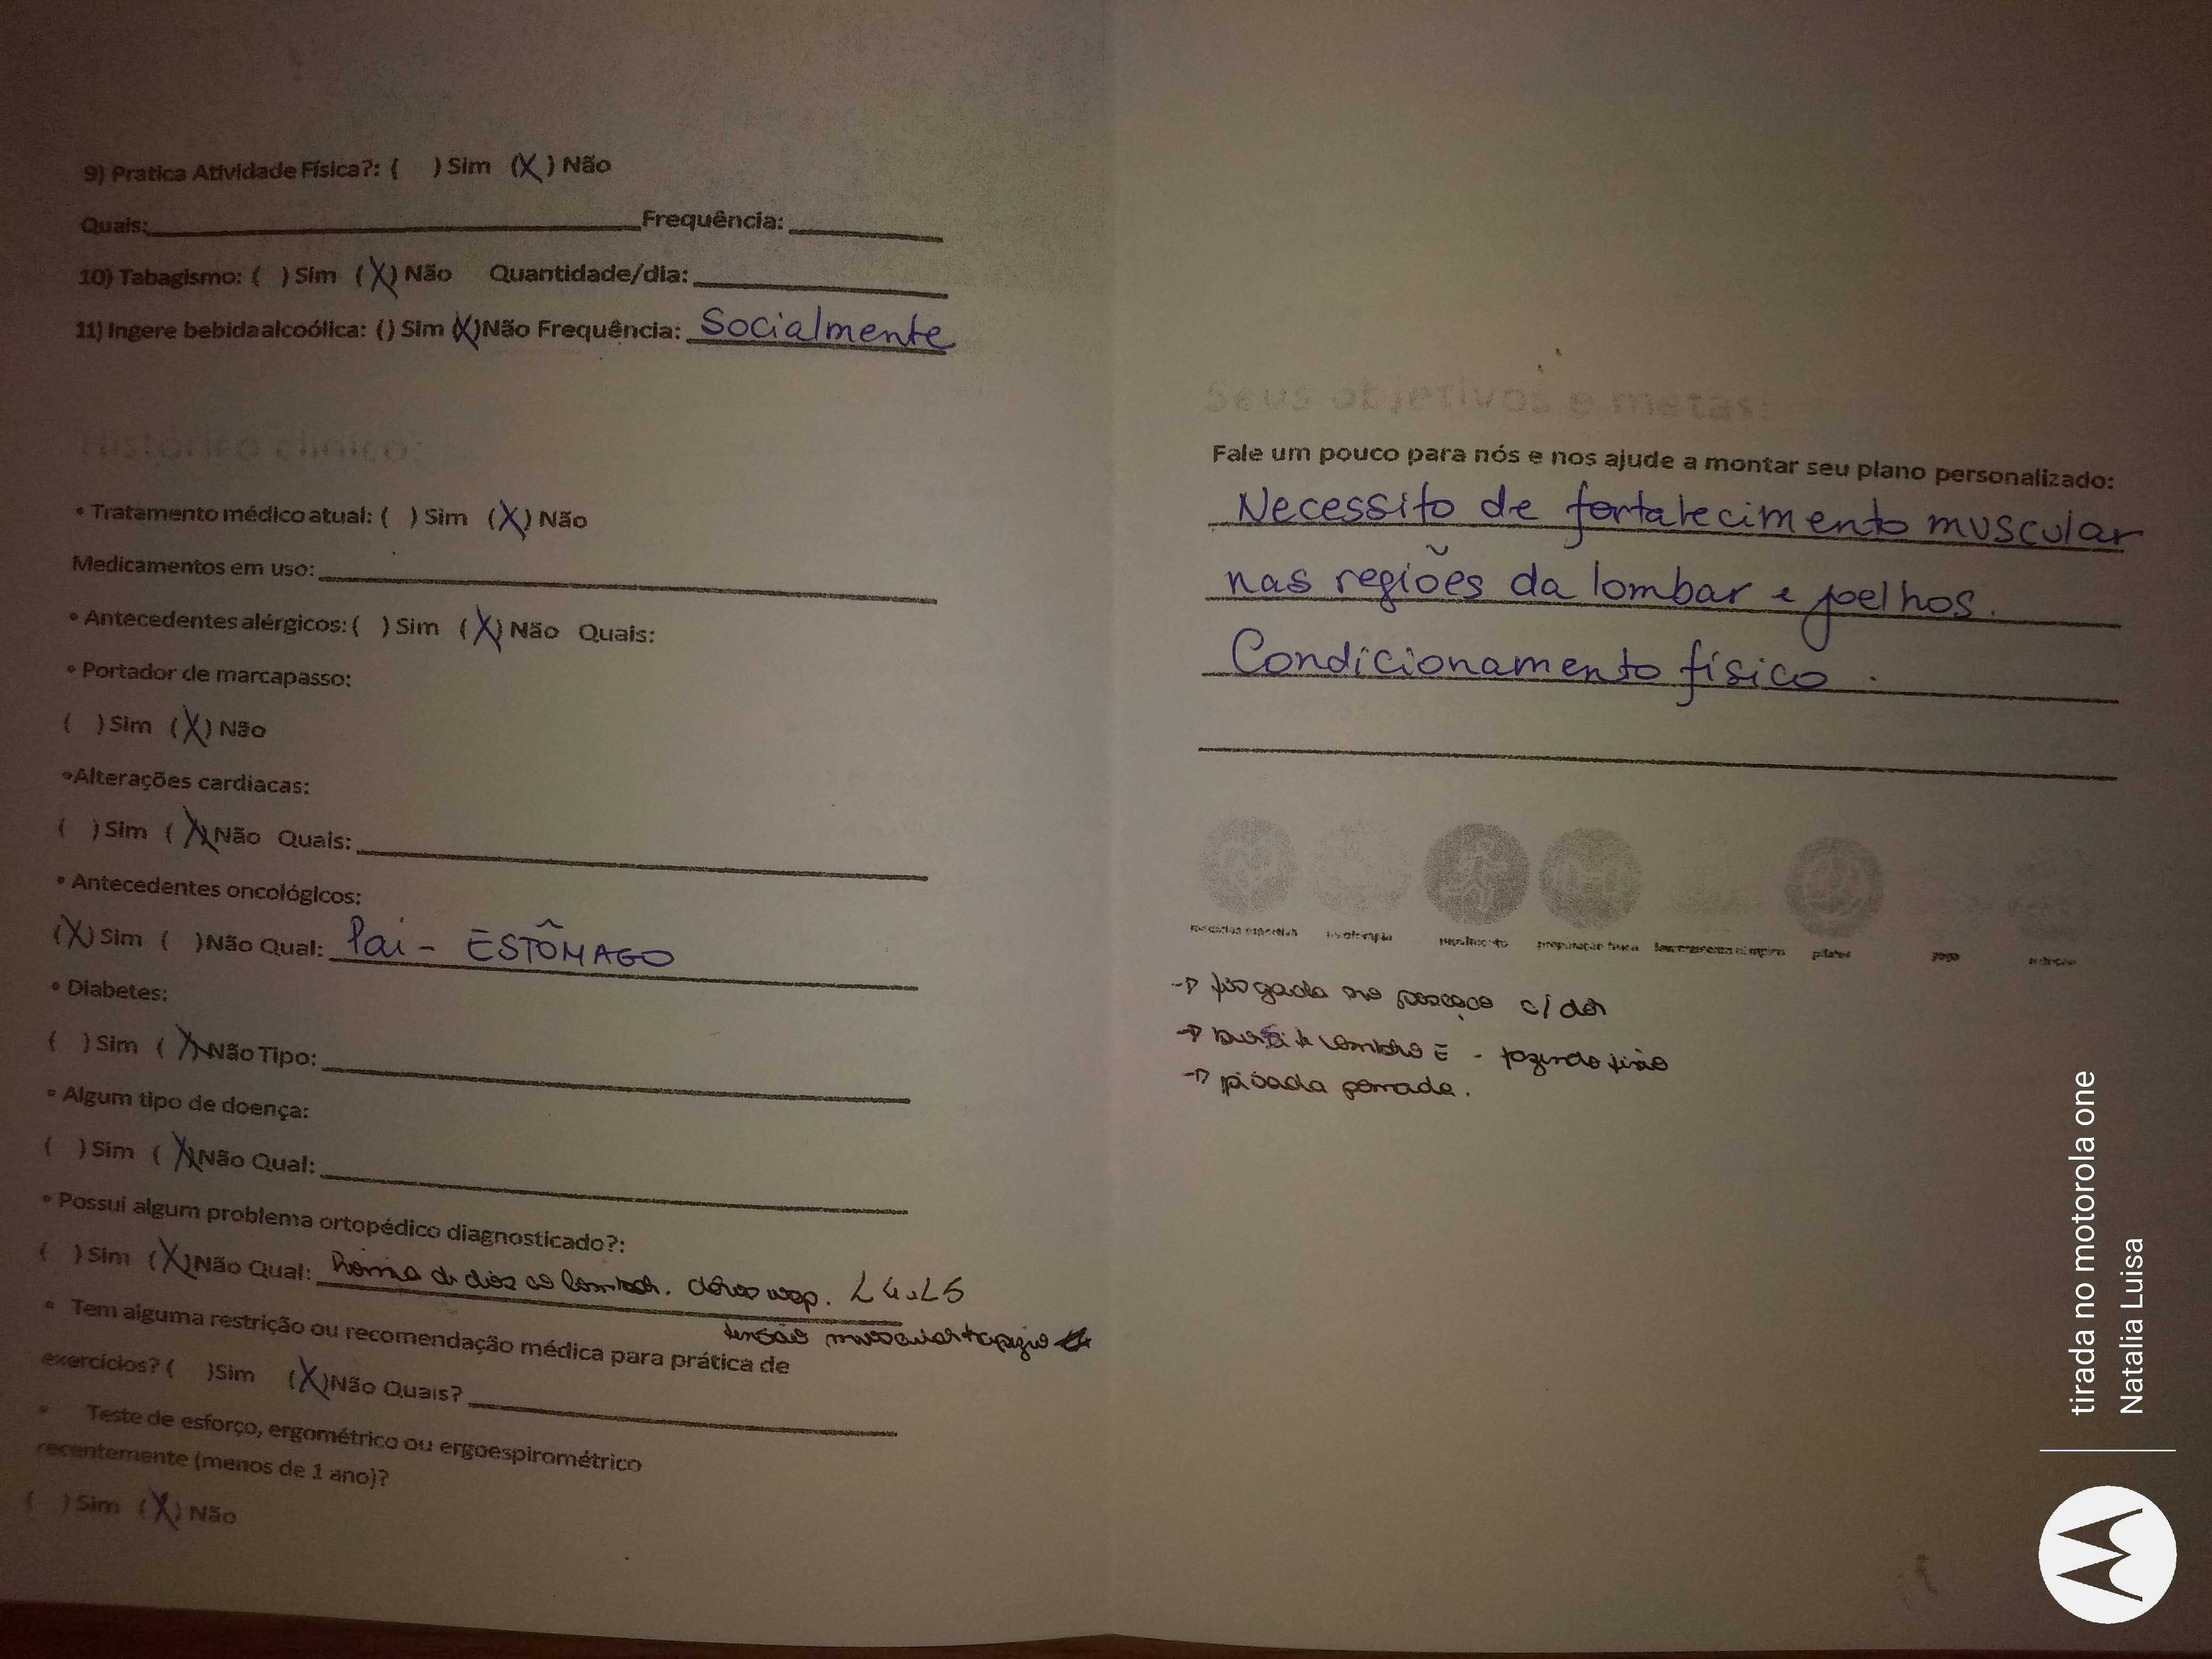 9) Pratica Atividade Física?: ( ) Sim (X) Não
Quais:____ Frequência:____
10) Tabagismo: ( ) Sim (X) Não Quantidade/dia:____
11) Ingere bebida alcoólica: () Sim (X) Não Frequência: Socialmente
Histórico clínico:
• Tratamento médico atual: ( ) Sim (X) Não
Medicamentos em uso:____
• Antecedentes alérgicos: ( ) Sim (X) Não Quais:
• Portador de marcapasso:
( ) Sim (X) Não
• Alterações cardiacas:
( ) Sim (X) Não Quais:____
• Antecedentes oncológicos:
(X) Sim ( ) Não Qual: Pai - ESTÔMAGO
• Diabetes:
( ) Sim (X) Não Tipo:____
• Algum tipo de doença:
( ) Sim (X) Não Qual:____
• Possui algum problema ortopédico diagnosticado?:
( ) Sim (X) Não Qual: L4.L5
tensão muscular trapézio
• Tem alguma restrição ou recomendação médica para prática de
exercícios? ( ) Sim (X) Não Quais?____
• Teste de esforço, ergométrico ou ergoespirométrico
recentemente (menos de 1 ano)?
( ) Sim (X) Não
Seus objetivos e metas:
Fale um pouco para nós e nos ajude a montar seu plano personalizado:
Necessito de fortalecimento muscular
nas regiões da lombar e joelhos.
Condicionamento físico.
pilates
yoga
→ fisgada no pescoço c/ dor
→ bursite ombro E - fazendo fisio
→ pisada pronada.
tirada no motorola one
Natalia Luisa